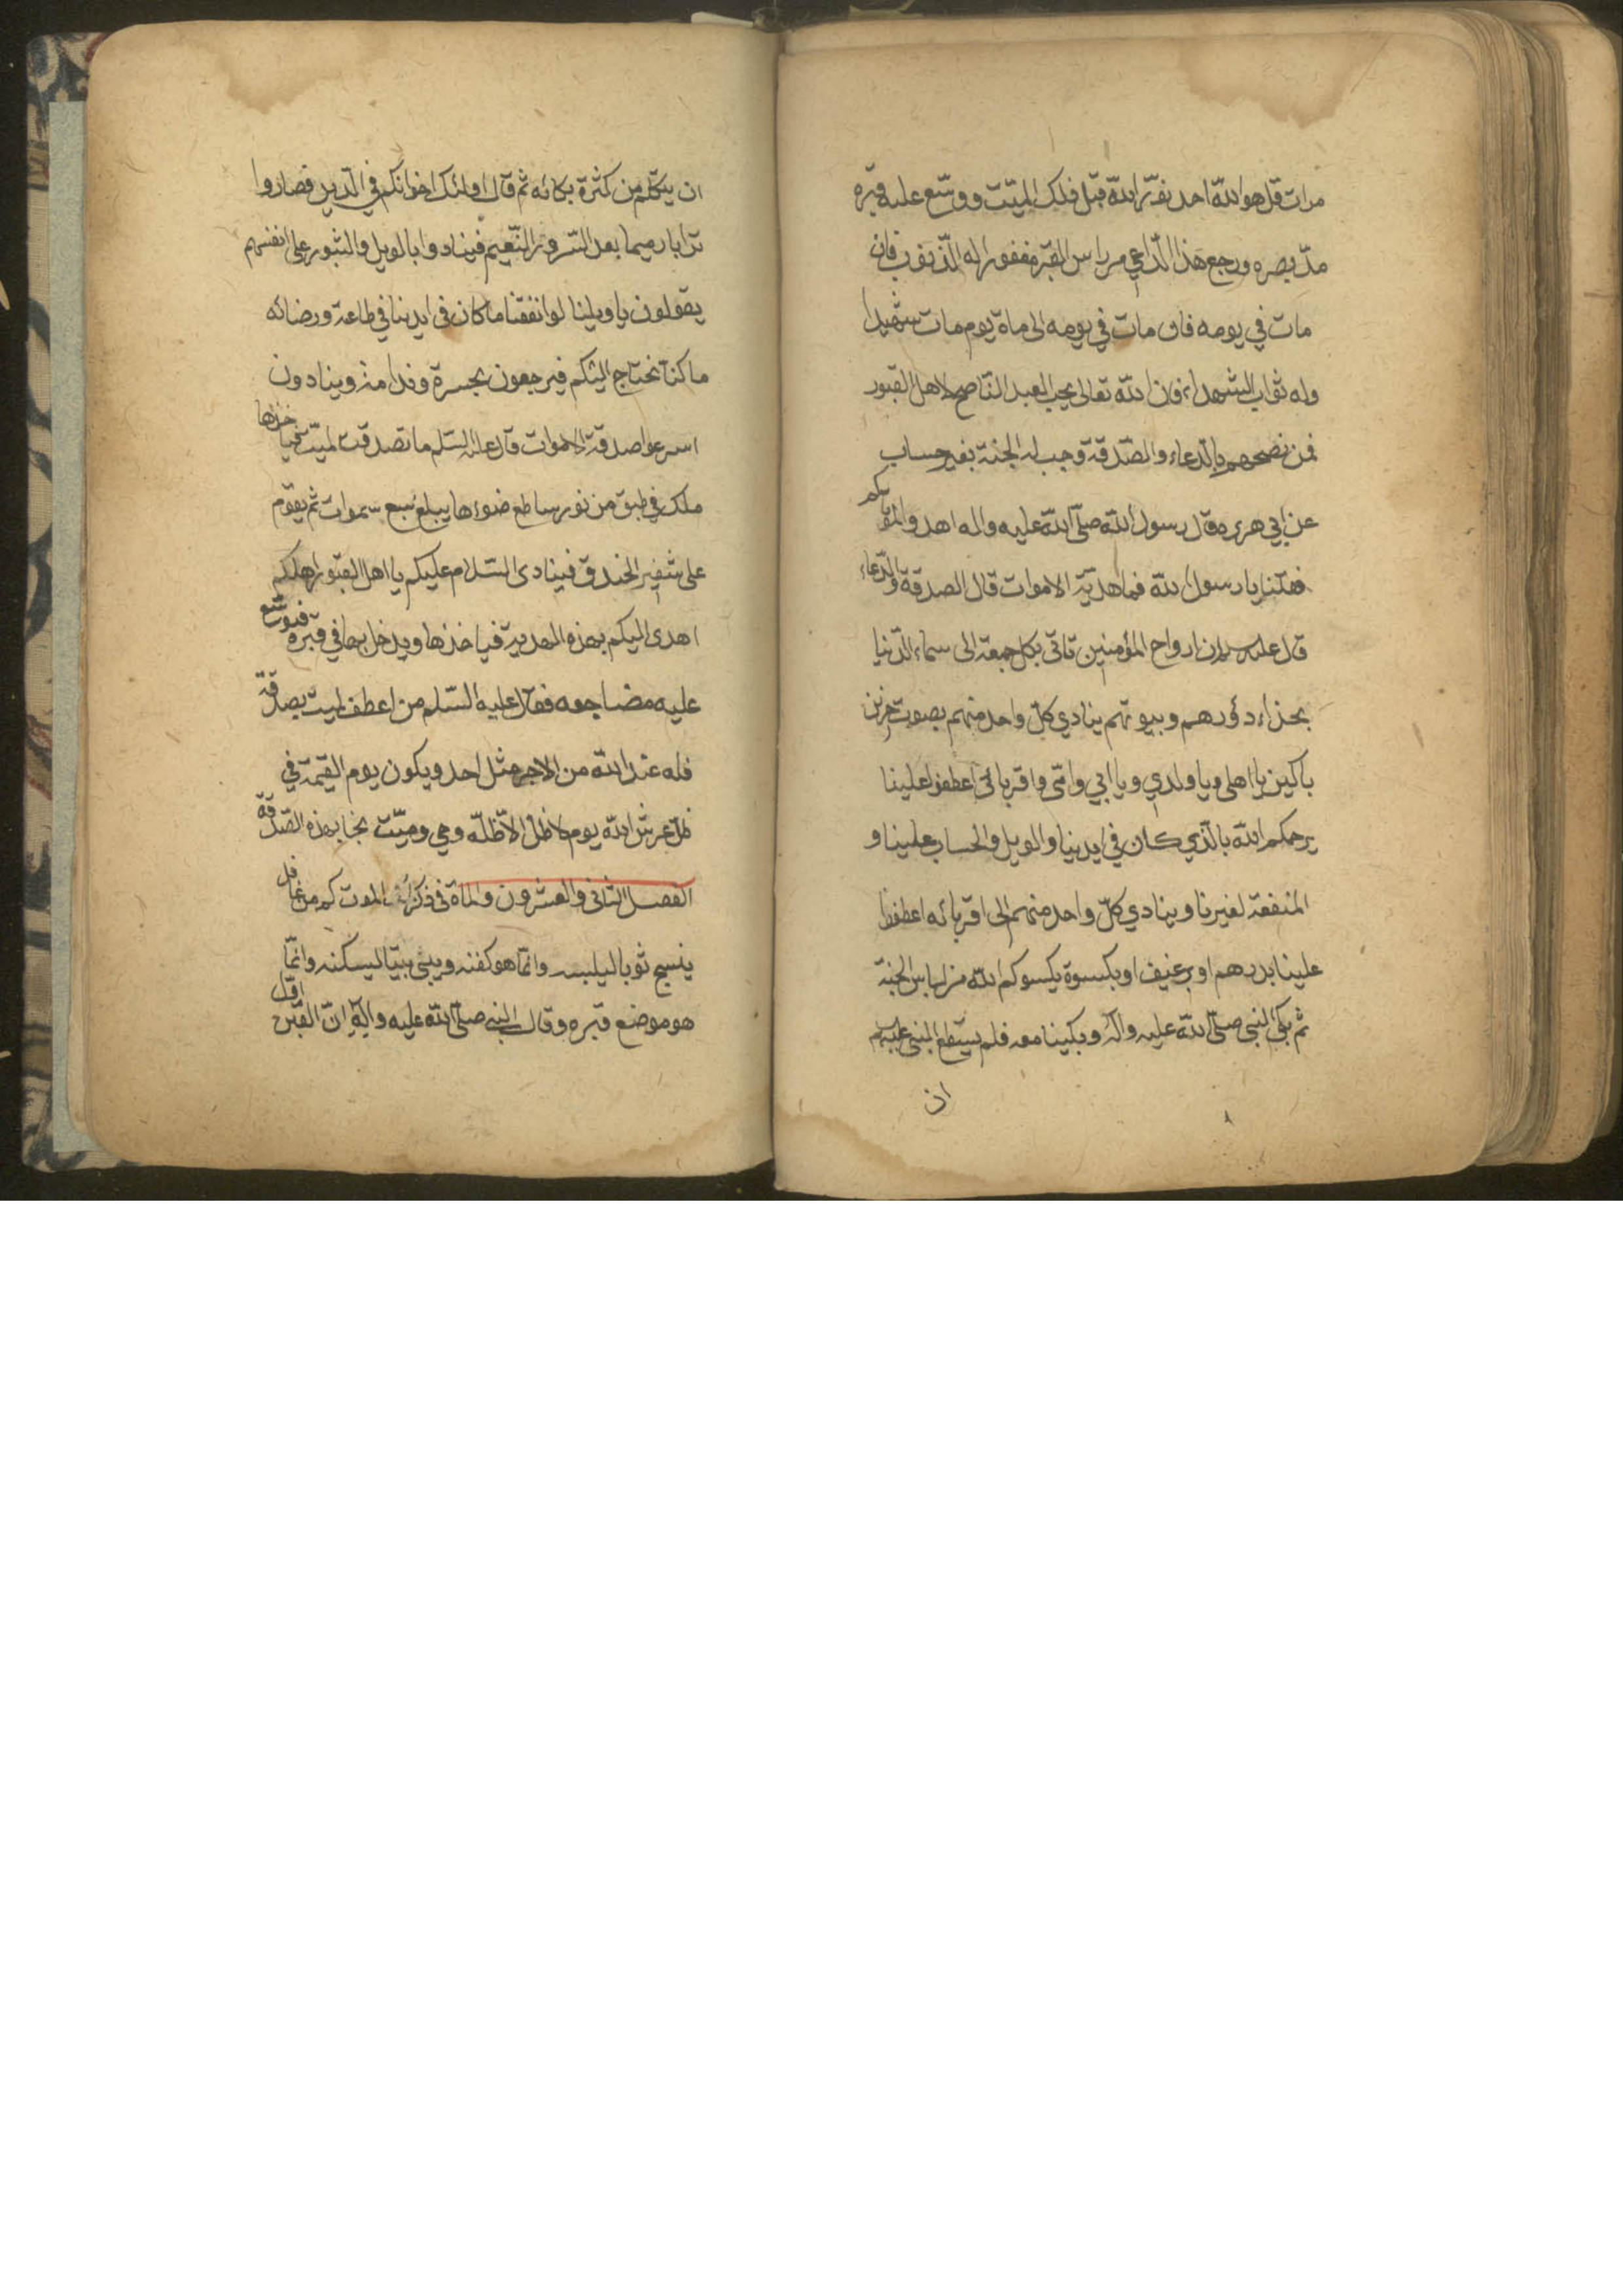 مرات قل هو اللّه احد نوّر اللّه قبر ذلك الميّت ووسّع عليه قبره
مدّ بصره ورجع هذا الدّاعي من راس القبر مغفورا له الذّنوب فان
مات في يومه فان مات في يومه الى ماة يوم مات شهيدا
وله ثواب الشهداء فان اللّه تعالى يحب العبد النّاصح لاهل القبور
فمن نصحهم بالدّعاء والصّدقة وجب له الجنة بغير حساب
عن ابي هريره قال رسول اللّه صلّى اللّه عليه واله اهدوا لموتاكم
فقلنا يا رسول اللّه فما هديّة الاموات قال الصدقة والدّعاء
قال عليه سلم ان ارواح المؤمنين تاتى بكل جمعة الى سماء الدّنيا
بحذاء دؤرهم وبيوتهم ينادي كلّ واحد منهم بصوت حزين
باكين يا اهلى ويا ولدي ويا ابي وامّى واقربائى اعطفوا علينا
يرحمكم اللّه بالّذي كان في ايدينا والويل والحساب علينا و
المنفعة لغيرنا وينادي كلّ واحد منهم الى اقربائه اعطفوا
علينا بدرهم او برغيف او بكسوة يكسوكم اللّه من لباس الجنة
ثم بكى النبى صلّى اللّه عليه واله وبكينا معه فلم يستطع النبى عليه سلم
ان
ان يتكلّم من كثرة بكائه ثم قال اولئك اخوانكم في الدّين فصاروا
ترابا رميما بعد السّرور والنّعيم فينادوا بالويل والثبور على انفسهم
يقولون يا ويلنا لو انفقنا ما كان في ايدينا في طاعة ورضائه
ما كنّا نحتاج اليكم فيرجعون بحسرة وندامة وينادون
اسرعوا صدقة الاموات قال عليه السّلم ما تصدقت لميّت فياخذها
ملك في طبق من نور ساطع ضوءها يبلغ سبع سموات ثم يقوم
على شفير الخندق فينادى السّلام عليكم يا اهل القبور اهلكم
اهدى اليكم بهذه الهدية فياخذها ويدخل بها في قبره فيوسّع
عليه مضاجعه فقال عليه السّلم من اعطف لميت بصدقة
فله عند اللّه من الاجر مثل احد ويكون يوم القيمة في
ظلّ عرش اللّه يوم لا ظلّ الاّ ظلّه وحي وميّت نجا بهذه الصّدقة
الفصل الثانى والعشرون والماة فى ذكر الموت كم من غافل
ينسج ثوبا ليلبسه وانّما هو كفنه ويبنى بيتا ليسكنه وانّما
هو موضع قبره وقال النبى صلّى اللّه عليه واله انّ القبر اوّل